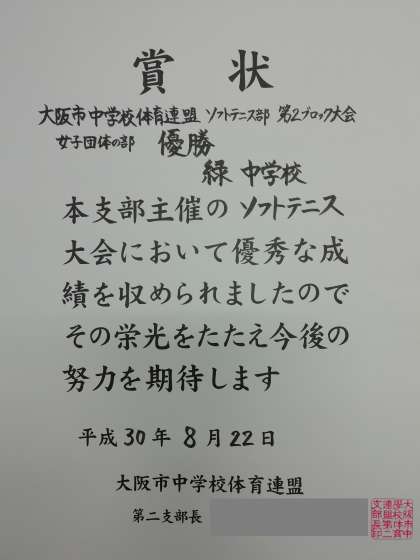 賞状
大阪市中学校体育連盟 ソフトテニス部 第2ブロック大会
女子団体の部 優勝
緑 中学校
本支部主催の ソフトテニス
大会において優秀な成
績を収められましたので
その栄光をたたえ今後の
努力を期待します
平成 30 年 8 月 22 日
大阪市中学校体育連盟
第二支部長